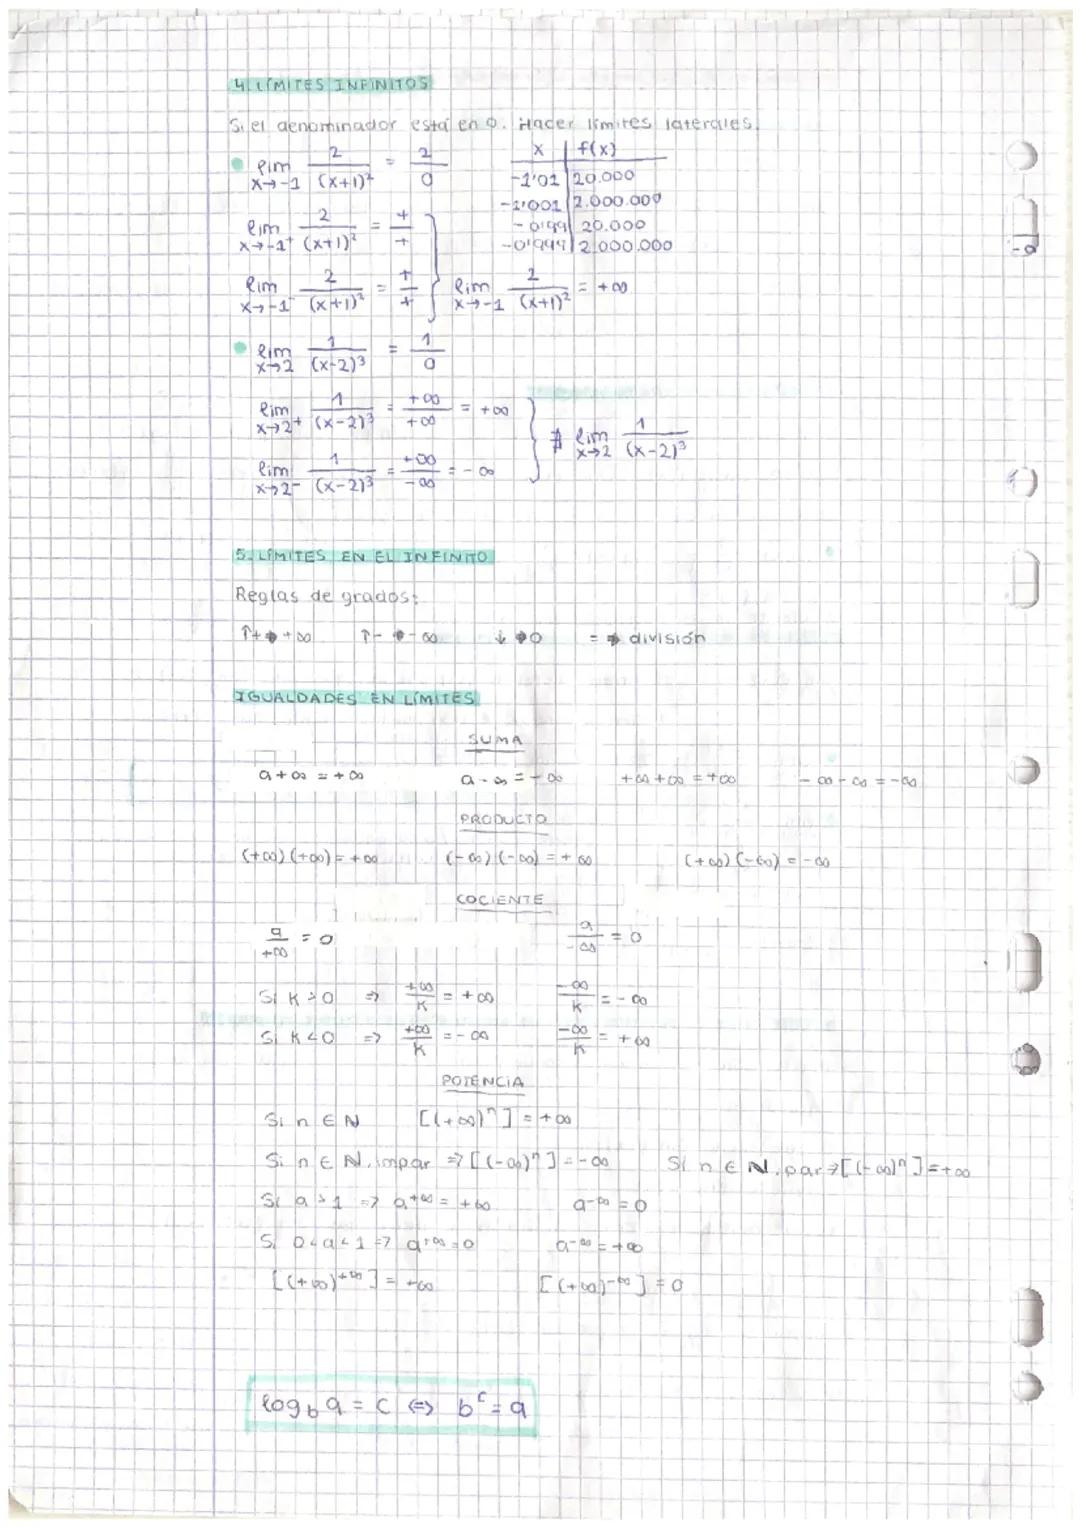 4. LÍMITES INFINITOS
Si el denominador está en 0. Hacer límites laterales.
lim x→-1 2/(x+1)² = 2/0
x | f(x)
-1'01 | 20.000
-1'001 | 2.000.000
-0'99 | 20.000
-0'999 | 2.000.000
lim x→-1⁺ 2/(x+1)² = +/+
lim x→-1⁻ 2/(x+1)² = +/+ } lim x→-1 2/(x+1)² = +∞
lim x→2 1/(x-2)³ = 1/0
lim x→2⁺ 1/(x-2)³ = +∞/+∞ = +∞
lim x→2⁻ 1/(x-2)³ = +∞/-∞ = -∞ } ∄ lim x→2 1/(x-2)³
5. LÍMITES EN EL INFINITO
Reglas de grados:
↑+ → +∞ ↑- → -∞ ↓ → 0 = → división
IGUALDADES EN LÍMITES
SUMA
a + ∞ = +∞ a - ∞ = -∞ +∞ + ∞ = +∞ -∞ - ∞ = -∞
PRODUCTO
(+∞) (+∞) = +∞ (-∞) (-∞) = +∞ (+∞) (-∞) = -∞
COCIENTE
a/+∞ = 0 a/-∞ = 0
Si K > 0 => +∞/K = +∞ -∞/K = -∞
Si K < 0 => +∞/K = -∞ -∞/K = +∞
POTENCIA
Si n ∈ N [(+∞)ⁿ] = +∞
Si n ∈ N, impar => [(-∞)ⁿ] = -∞ Si n ∈ N, par => [(-∞)ⁿ] = +∞
Si a > 1 => a^+∞ = +∞ a^-∞ = 0
Si 0 < a < 1 => a^+∞ = 0 a^-∞ = +∞
[(+∞)^+∞] = +∞ [(+∞)^-∞] = 0
log_b a = c <=> b^c = a